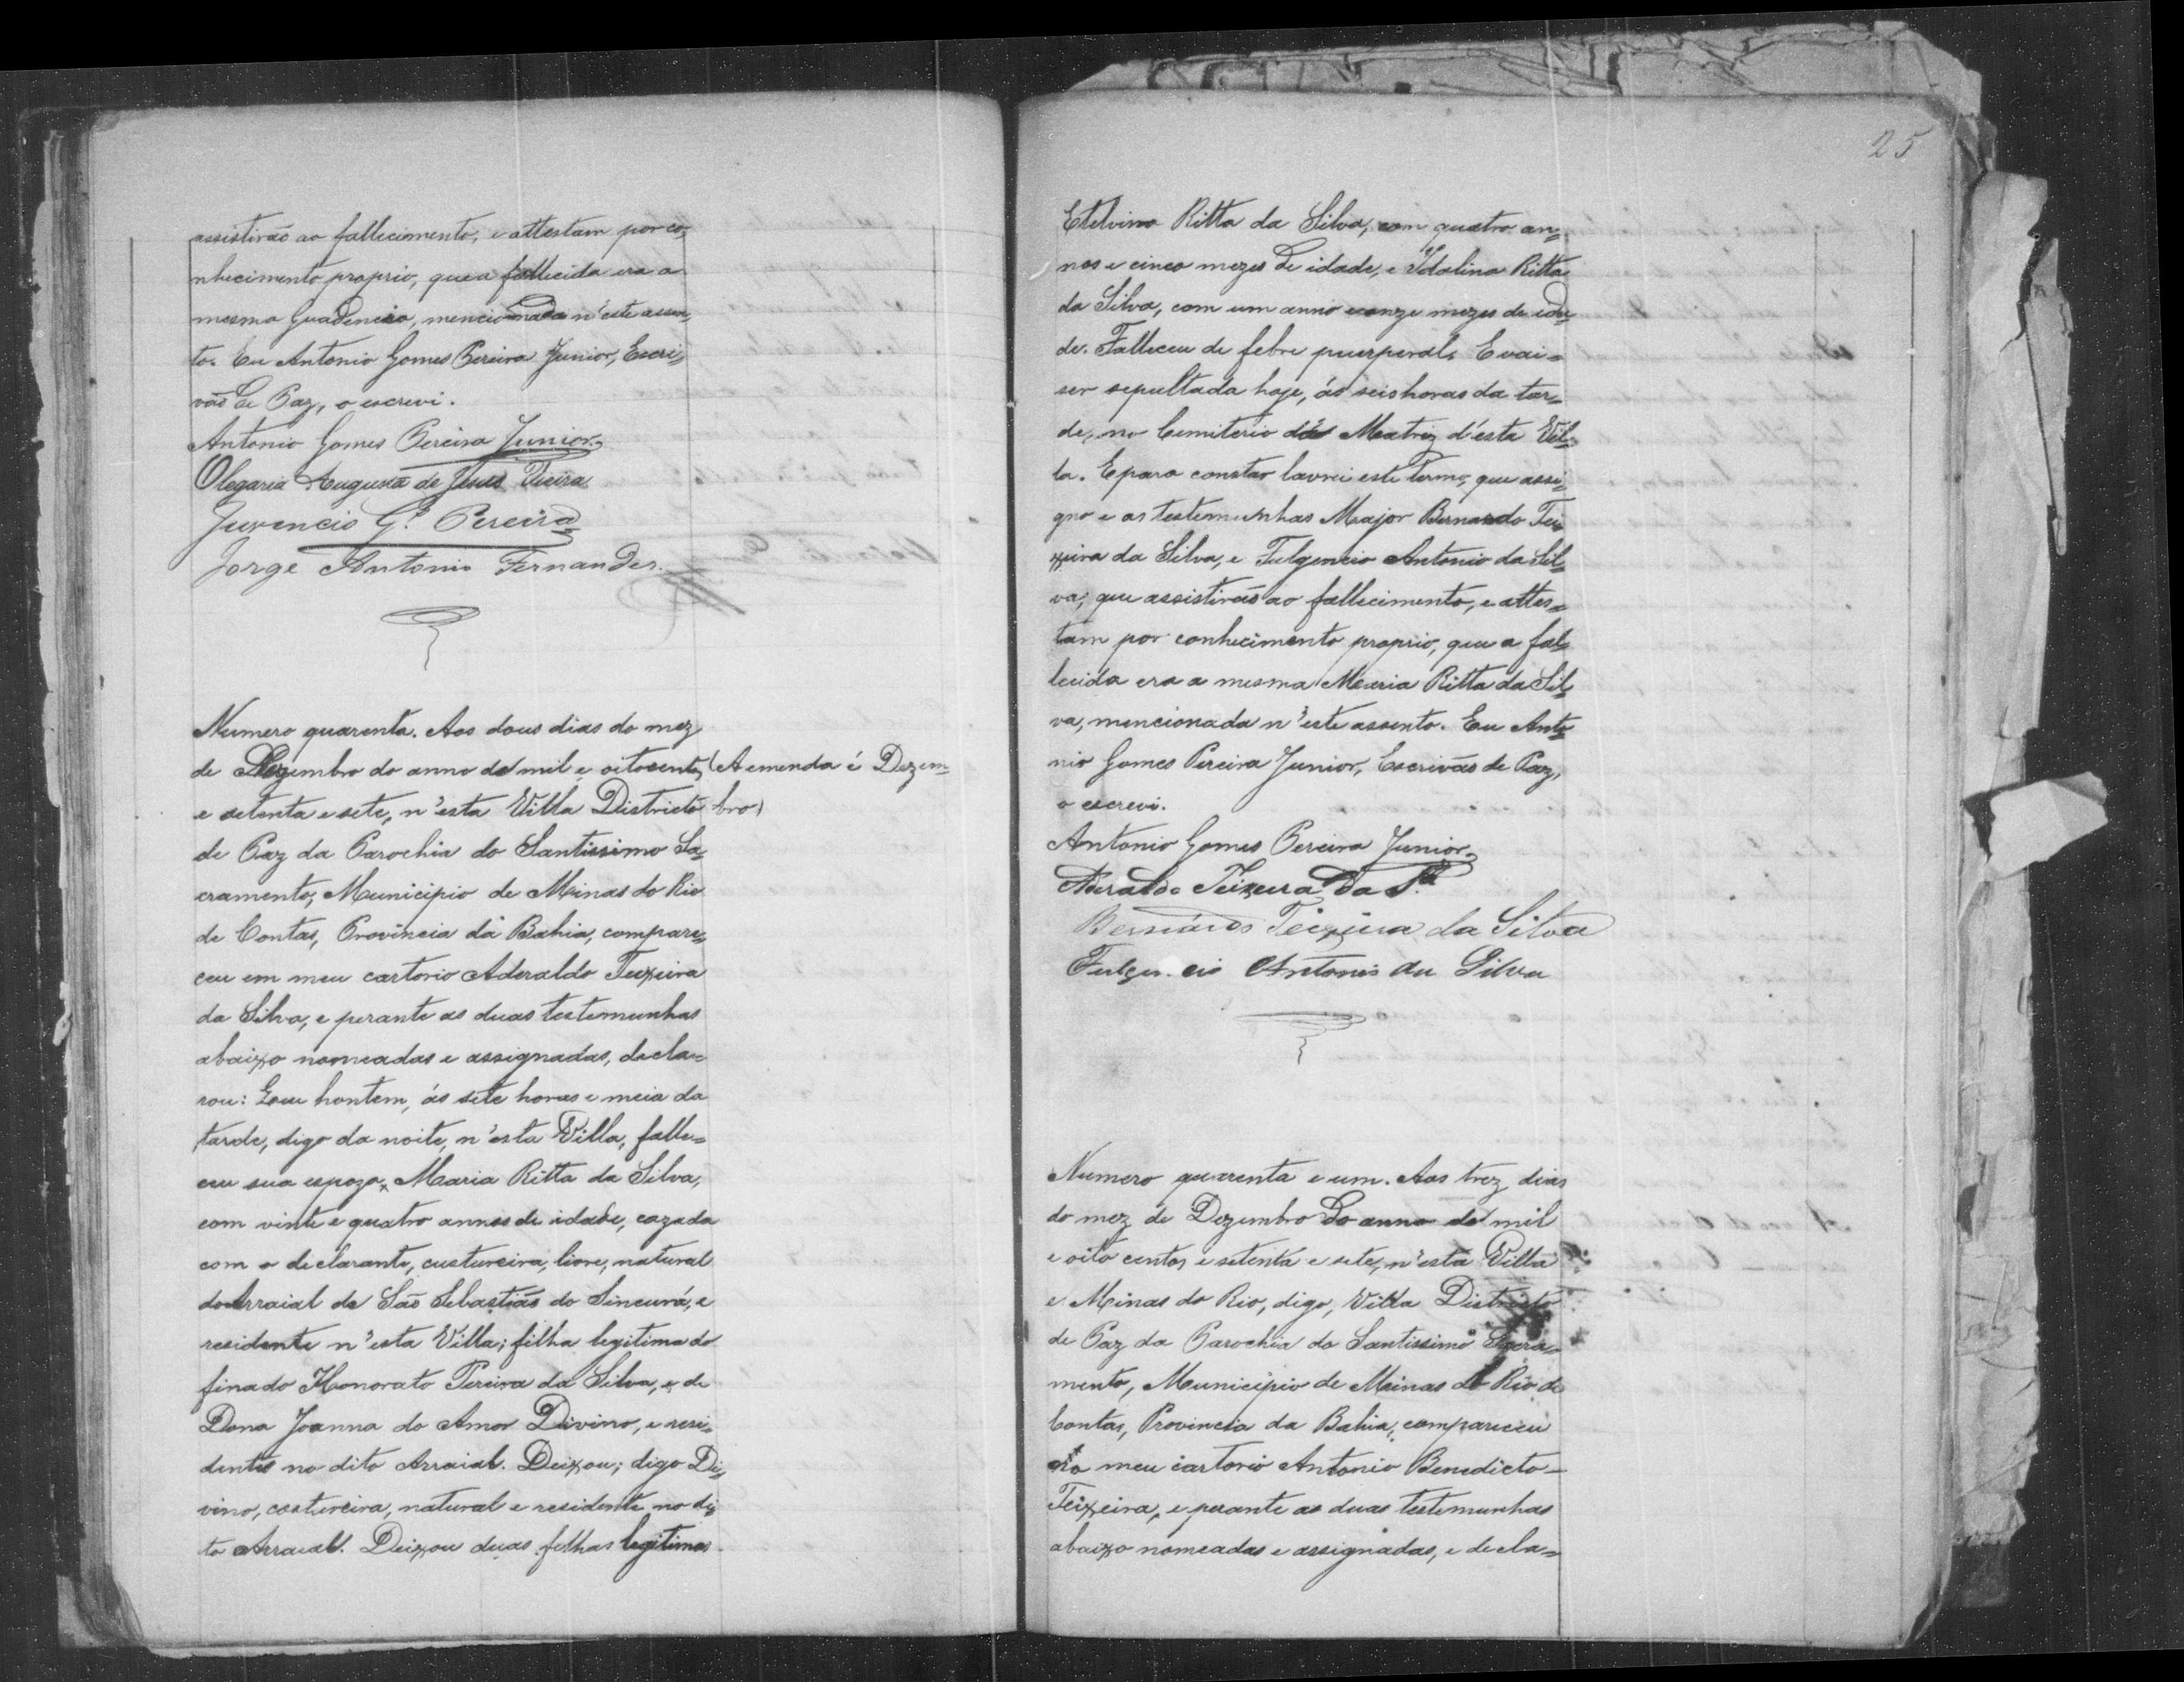 assistirão ao fallecimento, e attestam por co,,
nhecimento proprio, que a fallecida era a
mesma Guadencia, mencionada n'este assen,,
to. Eu Antonio Gomes Pereira Junior, Escri,,
vão de Paz, o escrevi.
Antonio Gomes Pereira Junior
Olegaria Augusta de Jesus Vieira
Juvencio G.s Pereira
Jorge Antonio Fernandes.
Numero quarenta. Aos dous dias do mez
de Dezembro do anno de mil e oitocentos (A emenda é Dezem=
e setenta e sete, n'esta Villa Districto bro)
de Paz da Parochia do Santissimo Sa,,
cramento, Municipio de Minas do Rio
de Contas, Provincia da Bahia, compare,,
ceu em meu cartorio Aderaldo Teixeira
da Silva, e perante as duas testemunhas
abaixo nomeadas e assignadas, decla=
rou: Que hontem, ás sete horas e meia da
tarde, digo da noite, n'esta Villa, falle=
ceu sua espoza, Maria Ritta da Silva,
com vinte e quatro annos de idade, cazada
com o declarante, custureira, livre, natural
do Arraial de São Sebastião do Sincurá, e
residente n'esta Villa; filha legitima do
finado Honorato Pereira da Silva, e de
Dona Joanna do Amor Divino, e resi,,
dentes no dito Arraial. Deixou; digo Di,,
vino, costureira, natural e residente no di,,
to Arraial. Deixou duas filhas legitimas
25
Etelvina Ritta da Silva, com quatro an,,
nos e cinco mezes de idade, e Idalina Ritta
da Silva, com um anno e onze mezes de ida,,
de. Falleceu de febre puerperal. E vai=
ser sepultada hoje, ás seis horas da tar,,
de, no Cemiterio da Matriz d'esta Vil,,
la. E para constar lavrei este termo, que assi,,
gno e as testemunhas Major Bernardo Tei,,
xeira da Silva, e Fulgencio Antonio da Sil,,
va, que assistirão ao fallecimento, e attes=
tam por conhecimento proprio, que a fal,,
lecida era a mesma Maria Ritta da Sil,,
va, mencionada n'este assento. Eu Anto,,
nio Gomes Pereira Junior, Escrivão de Paz,
o escrevi.
Antonio Gomes Pereira Junior
Aderaldo Teixeira da S.a
Bernardo Teixeira da Silva
Fulgencio Antonio da Silva
Numero quarenta e um. Aos trez dias
do mez de Dezembro do anno de mil
e oito centos e setenta e sete, n'esta Villa
e Minas do Rio, digo, Villa Districto
de Paz da Parochia do Santissimo Sacra=
mento, Municipio de Minas do Rio de
Contas, Provincia da Bahia, compareceu
no meu cartorio Antonio Benedicto
Teixeira, e perante as duas testemunhas
abaixo nomeadas e assignadas, e decla=